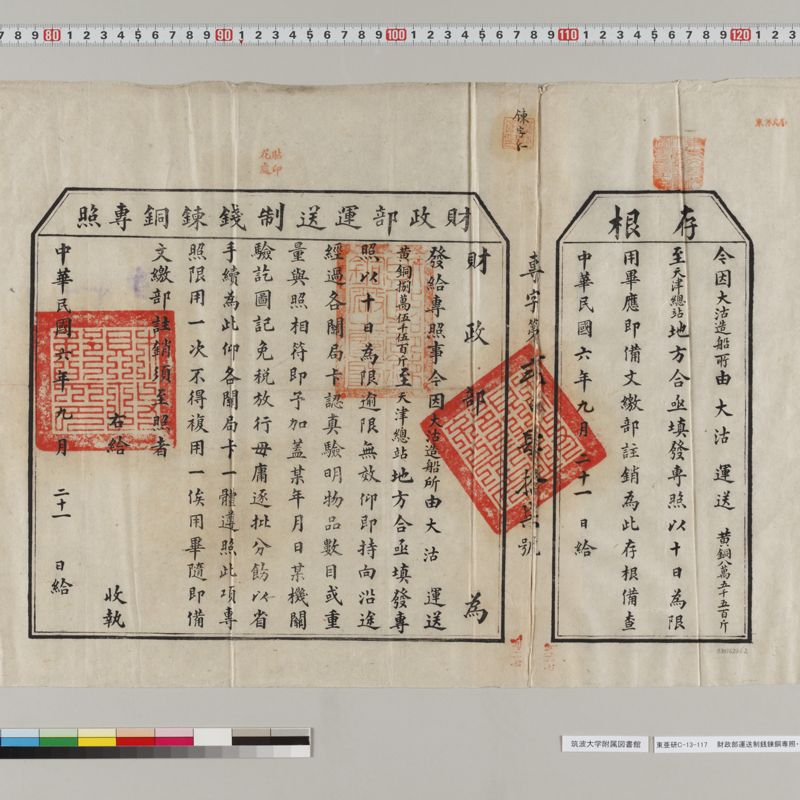 存根
令因大沽造船所由大沽運送黃銅八萬五千五百斤
至天津總站地方合亟填發專照以十日為限
用畢應即備文繳部註銷為此存根備查
中華民國六年九月二十一日給
專字第
號
財政部運送制錢鍊銅專照
財政部為
發給專照事令因大沽造船所由大沽運送
黃銅捌萬伍千伍百斤至天津總站地方合亟填發專
照以十日為限逾限無效仰即持向沿途
經過各關局卡認真驗明物品數目或重
量與照相符即予加蓋某年月日某機關
驗訖圖記免稅放行毋庸逐批分飭以省
手續為此仰各關局卡一體遵照此項專
照限用一次不得複用一俟用畢隨即備
文繳部註銷須至照者
右給
收執
中華民國六年九月二十一日給
貼印
花處
80
90
100
110
120
筑波大学附属図書館
東亜研C-13-117 財政部運送制銭錬銅専照・